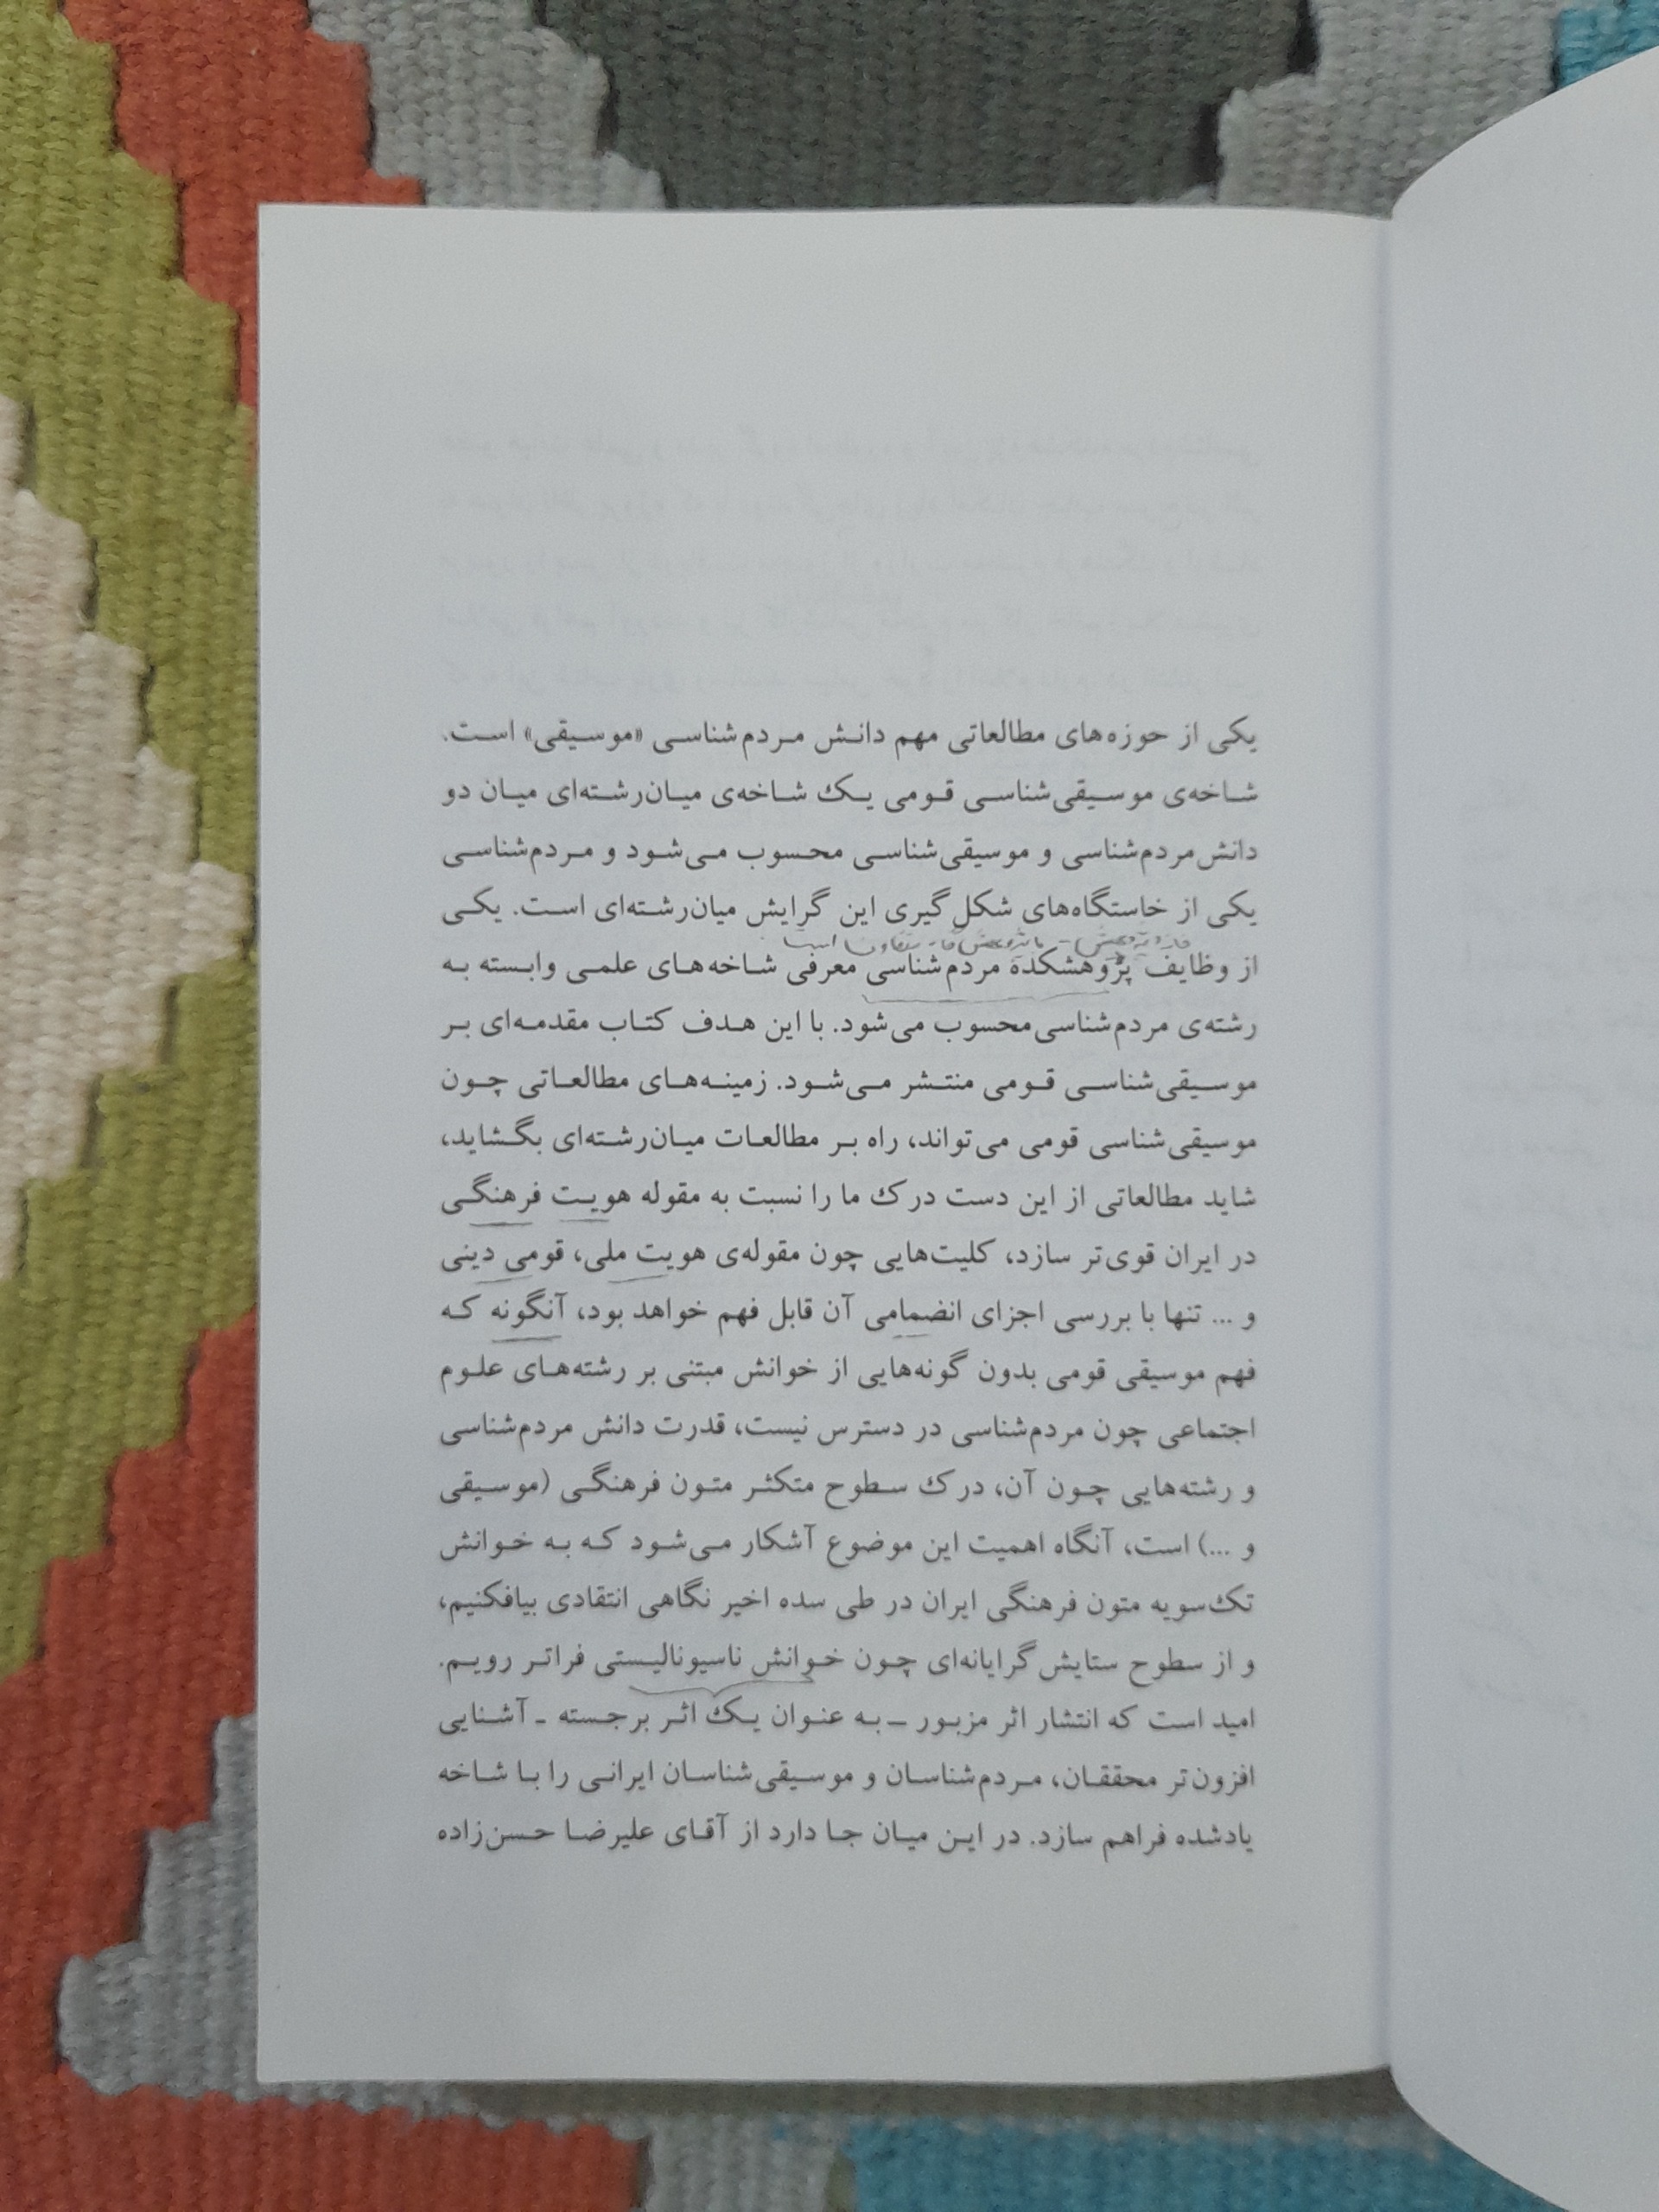 یکی از حوزه‌های مطالعاتی مهم دانش مردم‌شناسی «موسیقی» است.
شاخه‌ی موسیقی‌شناسی قومی یک شاخه‌ی میان‌رشته‌ای میان دو
دانش مردم‌شناسی و موسیقی‌شناسی محسوب می‌شود و مردم‌شناسی
یکی از خاستگاه‌های شکل‌گیری این گرایش میان‌رشته‌ای است. یکی
از وظایف پژوهشکده مردم‌شناسی معرفی شاخه‌های علمی وابسته به
رشته‌ی مردم‌شناسی محسوب می‌شود. با این هدف کتاب مقدمه‌ای بر
موسیقی‌شناسی قومی منتشر می‌شود. زمینه‌های مطالعاتی چون
موسیقی‌شناسی قومی می‌تواند، راه بر مطالعات میان‌رشته‌ای بگشاید،
شاید مطالعاتی از این دست درک ما را نسبت به مقوله هویت فرهنگی
در ایران قوی‌تر سازد، کلیت‌هایی چون مقوله‌ی هویت ملی، قومی دینی
و ... تنها با بررسی اجزای انضمامی آن قابل فهم خواهد بود، آنگونه که
فهم موسیقی قومی بدون گونه‌هایی از خوانش مبتنی بر رشته‌های علوم
اجتماعی چون مردم‌شناسی در دسترس نیست، قدرت دانش مردم‌شناسی
و رشته‌هایی چون آن، درک سطوح متکثر متون فرهنگی (موسیقی
و ...) است، آنگاه اهمیت این موضوع آشکار می‌شود که به خوانش
تک‌سویه متون فرهنگی ایران در طی سده اخیر نگاهی انتقادی بیافکنیم،
و از سطوح ستایش‌گرایانه‌ای چون خوانش ناسیونالیستی فراتر رویم.
امید است که انتشار اثر مزبور ـ به عنوان یک اثر برجسته ـ آشنایی
افزون‌تر محققان، مردم‌شناسان و موسیقی‌شناسان ایرانی را با شاخه
یادشده فراهم سازد. در این میان جا دارد از آقای علیرضا حسن‌زاده